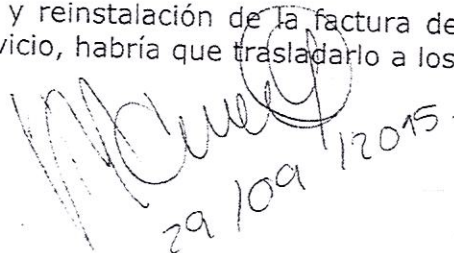 y reinstalación de la factura de
vicio, habría que trasladarlo a los
29/09/2015.